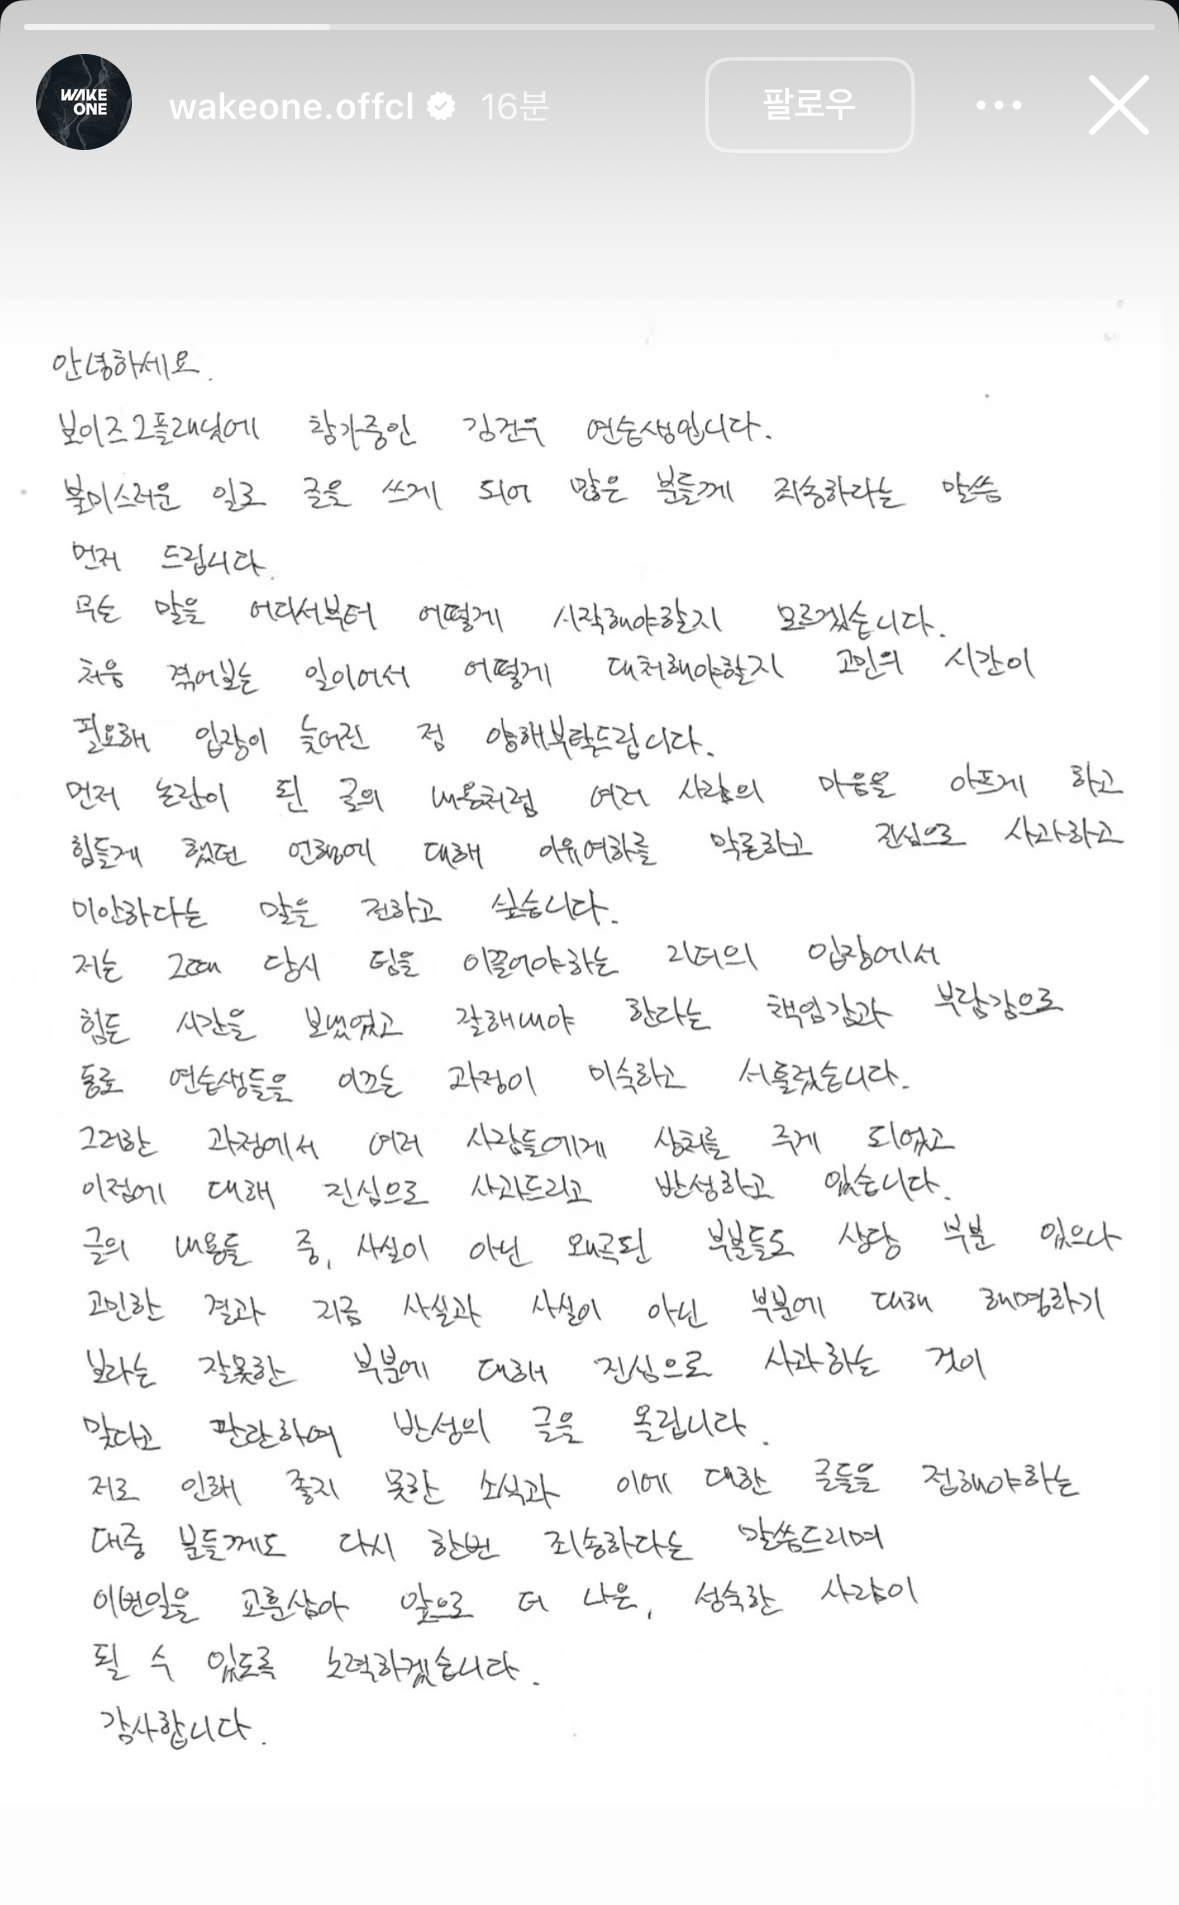 WAKE
ONE
wakeone.offcl 16분 팔로우
안녕하세요.
보이즈2플래닛에 참가중인 김건우 연습생입니다.
불미스러운 일로 글을 쓰게 되어 많은 분들께 죄송하다는 말씀
먼저 드립니다.
무슨 말을 어디서부터 어떻게 시작해야할지 모르겠습니다.
처음 겪어보는 일이어서 어떻게 대처해야할지 고민의 시간이
필요해 입장이 늦어진 점 양해부탁드립니다.
먼저 논란이 된 글의 내용처럼 여러 사람의 마음을 아프게 하고
힘들게 했던 언행에 대해 이유여하를 막론하고 진심으로 사과하고
미안하다는 말을 전하고 싶습니다.
저는 그때 당시 팀을 이끌어야하는 리더의 입장에서
힘든 시간을 보냈었고 잘해내야 한다는 책임감과 부담감으로
동료 연습생들을 이끄는 과정이 미숙하고 서툴렀습니다.
그러한 과정에서 여러 사람들에게 상처를 주게 되었고
이점에 대해 진심으로 사과드리고 반성하고 있습니다.
글의 내용들 중, 사실이 아닌 왜곡된 부분들도 상당 부분 있으나
고민한 결과 지금 사실과 사실이 아닌 부분에 대해 해명하기
보다는 잘못한 부분에 대해 진심으로 사과하는 것이
맞다고 판단하여 반성의 글을 올립니다.
저로 인해 좋지 못한 소식과 이에 대한 글들을 접해야하는
대중 분들께도 다시 한번 죄송하다는 말씀드리며
이번일을 교훈삼아 앞으로 더 나은, 성숙한 사람이
될 수 있도록 노력하겠습니다.
감사합니다.